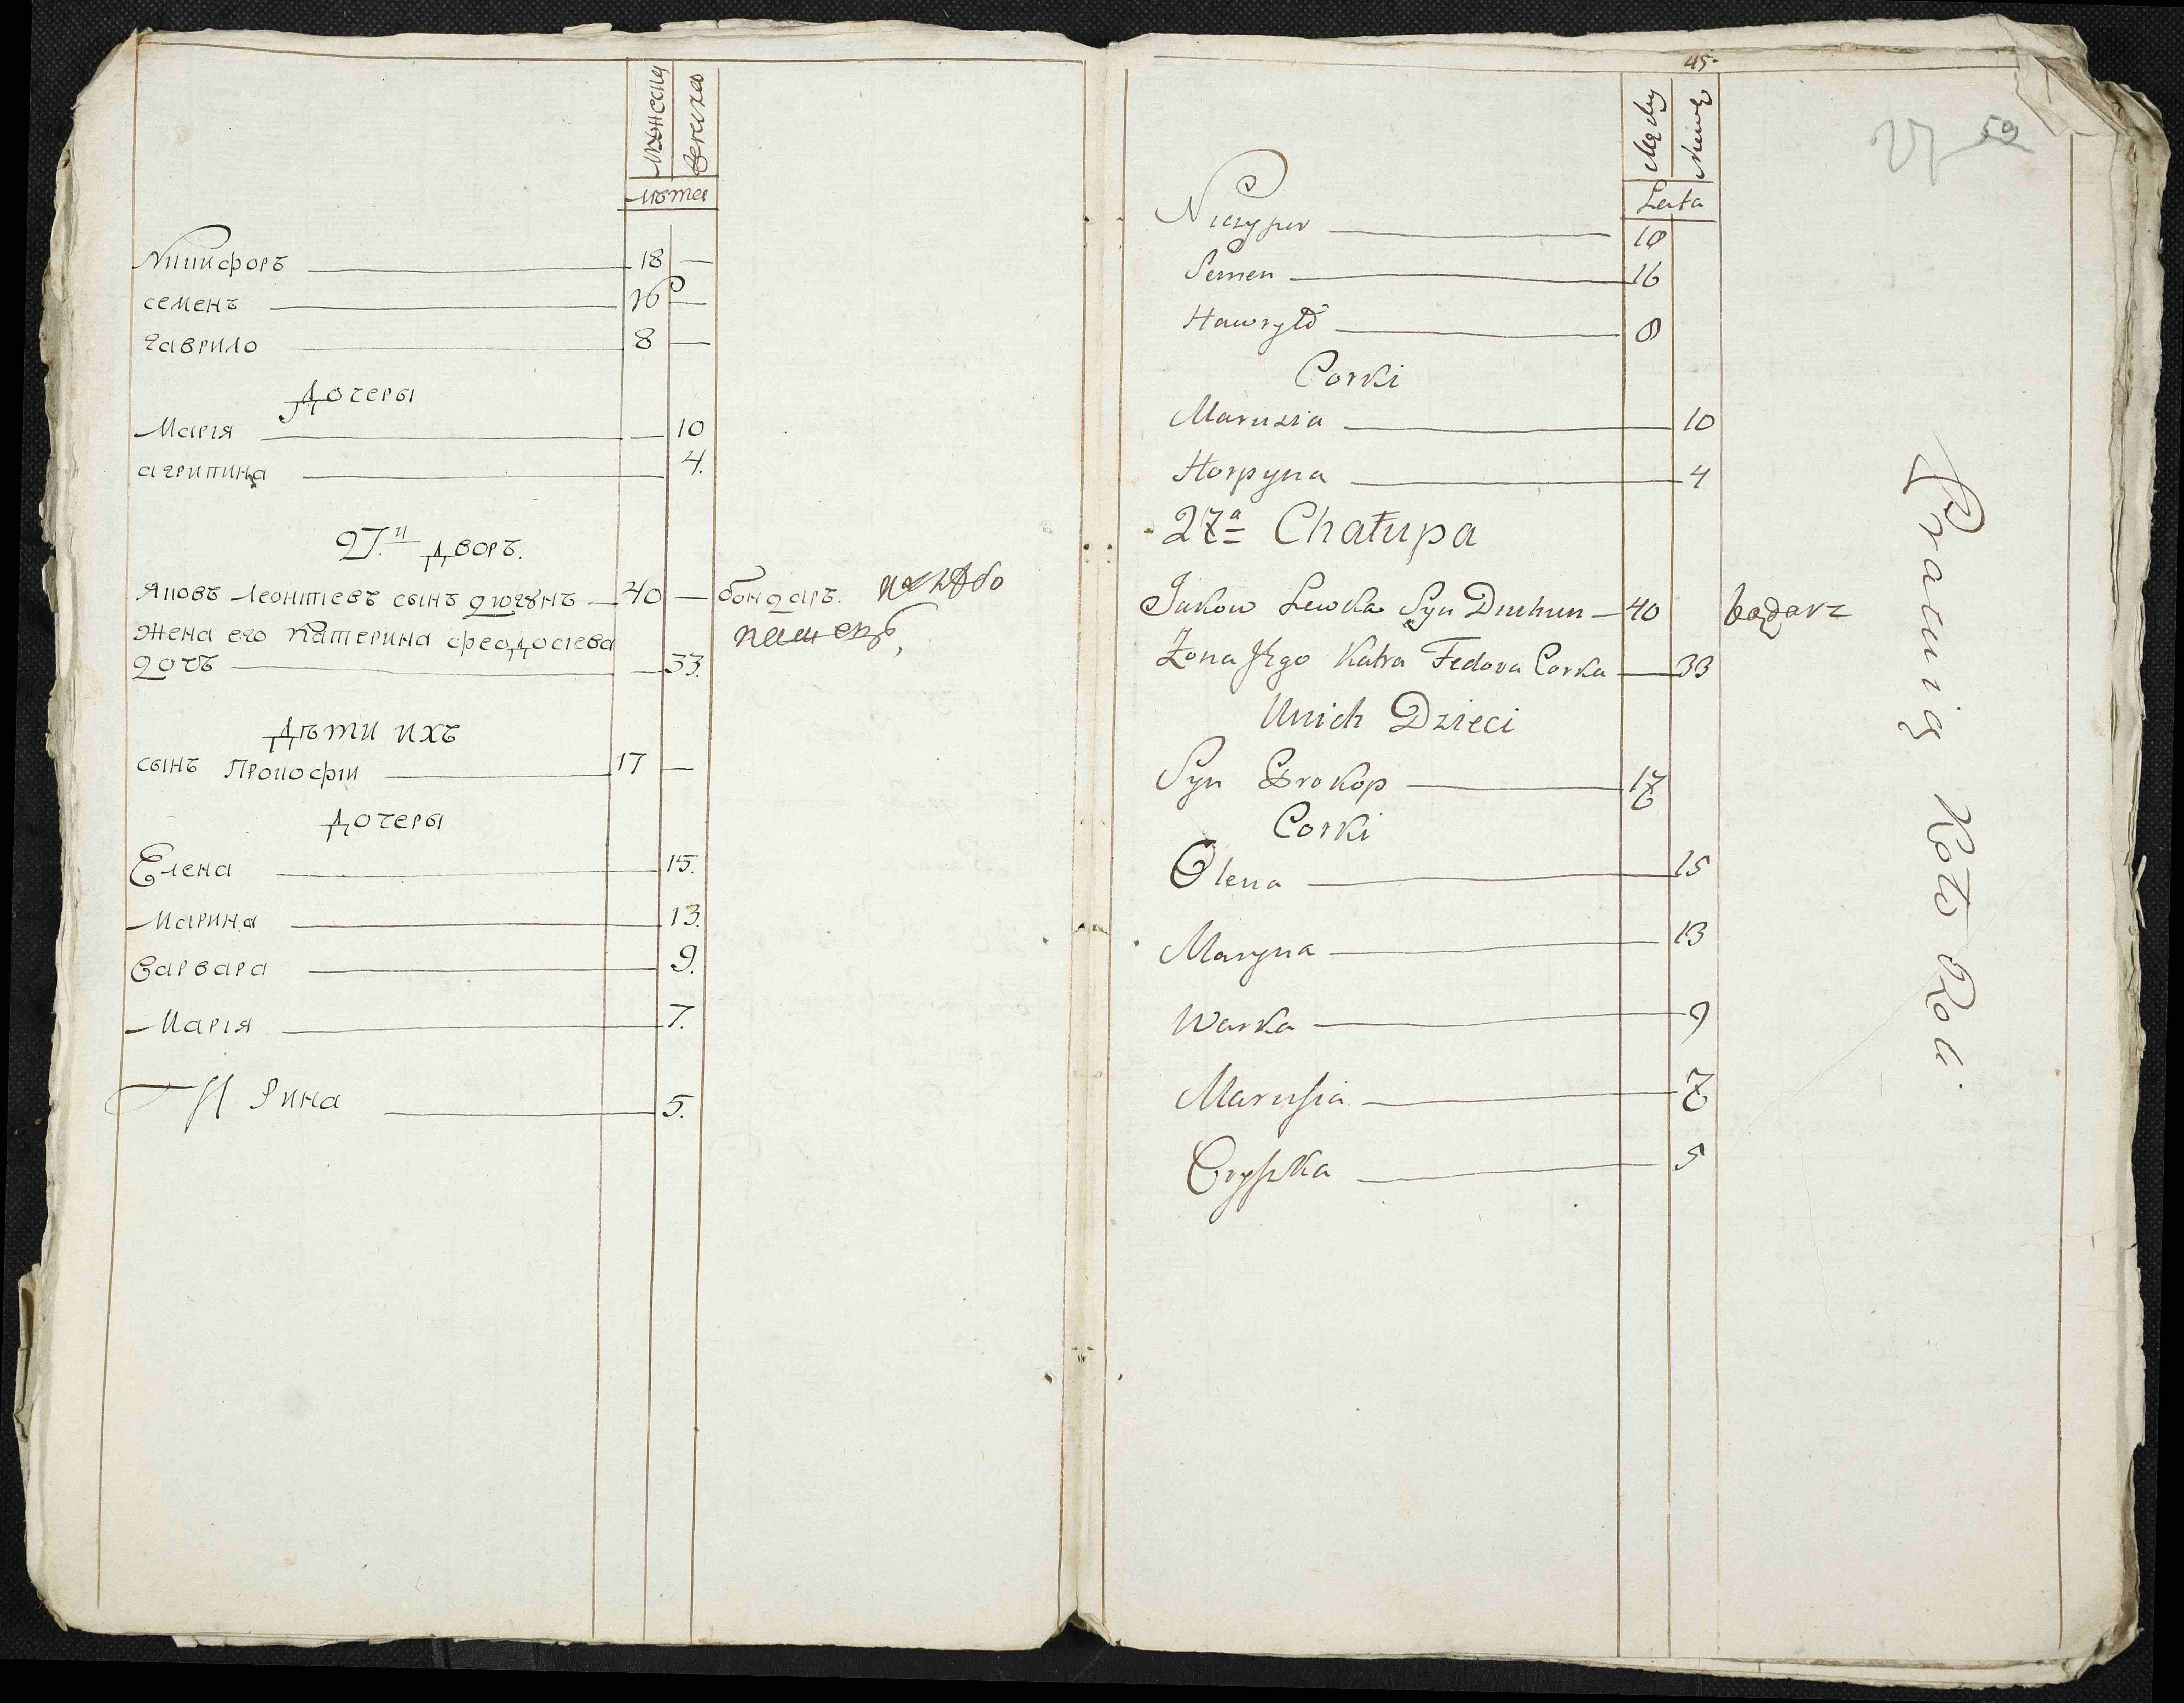 мужеска
женска
лѣта
Никифоръ 18 —
семенъ 16 —
гаврило 8 —
Дочеры
Марія — 10
агрипина 4.
27.й дворъ.
Яковъ Леонтіевъ сынъ дюгунъ 40 — бондаръ.
Жена его Катерина феодосіева
дочъ — 33.
Дѣти ихъ
сынъ Прокофіи 17 —
Дочеры
Елена 15.
Марина 13.
Варвара 9.
Марія 7.
Ирина 5.
45.
27 50
Lata
Niczypor 18
Semen 16
Hawryło 8
Corki
Marusia 10
Horpyna 4
27ª Chałupa
Jakow Lewka Syn Diuhun 40 bądarz
Żona Jego Katra Fedora Corka 33
U nich Dzieci
Syn Prokop 17
Corki
Olena 15
Maryna 13
Warka 9
Marusia 7
Oryszka 5
Pracuią Koło Roli